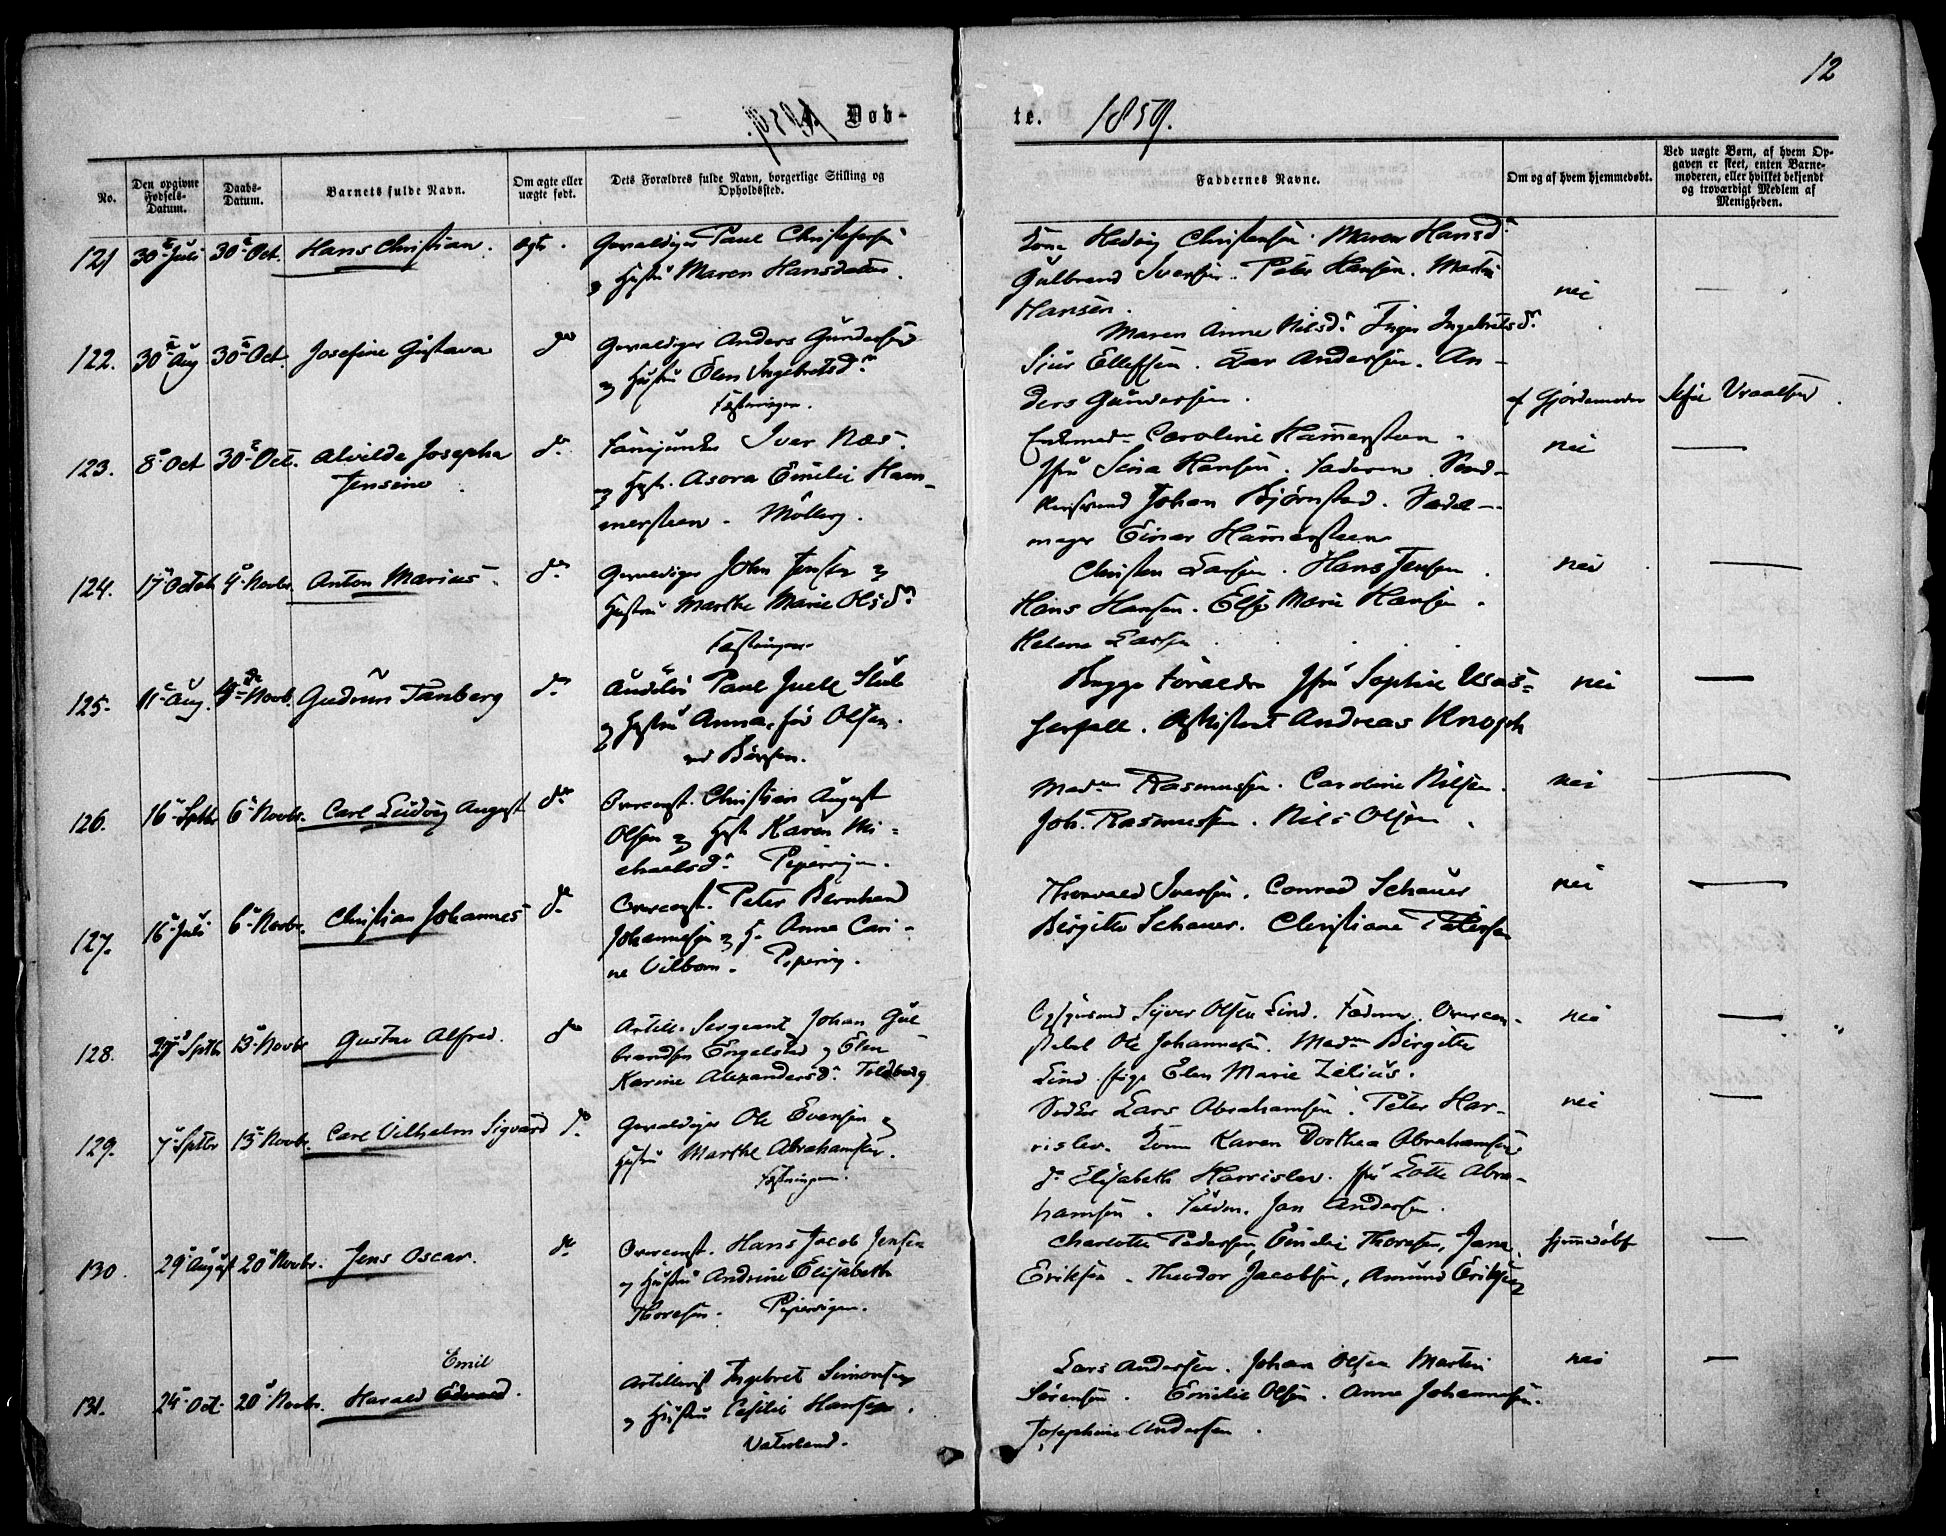 12
1859. Døb-
te. 1859.
No.
Den opgivne Fødsels-Datum.
Daabs-Datum.
Barnets fulde Navn.
Om ægte eller uægte født.
Dets Forældres fulde Navn, borgerlige Stilling og Opholdssted.
Faddernes Navne.
Om og af hvem hjemmedøbt.
Ved uægte Børn, af hvem Op-
gaven er skeet, enten Barne-
moderen, eller hvilket bekjendt
og troværdigt Medlem af
Menigheden.
121 30 Juli 30 Oct. Hans Christian. ægte. Gevaldiger Paul Christofersen
Hustru Maren Hansdatter.
Kone Hedvig Christensen. Maren Hansd.
Gulbrand Iversen. Peter Hansen. Martin
Hansen. nei —
122. 30 Aug 30 Oct. Josefine Gustava do Gevaldiger Anders Gundersen
Hustru Elen Ingebretsd.
Fæstningen.
Maren Anne Nilsd. Inger Ingebretsd.
Siur Ellefsen. Lars Andersen. An-
ders Gundersen. af Gjordemoder
123. 8 Oct 30 Oct. Alvilde Josepha
Jensine do Fanejunker Iver Næs.
Hustr. Asora Emilie Ham-
mersteen. Møllerg.
Caroline Hammersteen.
Jfru Sina Hansen. Faderen.
Johan Bjørnstad. Sadel-
mager Einar Hammersteen nei —
124. 17 Octob 4 Novbr. Anton Marius. do Gevaldiger John Jensen
Hustru Marthe Marie Olsd.
Fæstningen.
Christen Larsen. Hans Jensen.
Hans Hansen. Else Marie Hansen.
Helene Larsen nei —
125. 11 Aug. Novb. Gudrun Tanberg do Auditør Paul Juell
Hustru Anna, før Olsen.
ved Børsen.
Begge Forældre Jfru Sophie
Assistent Andreas Knoph nei —
126. 16 Septbr 6 Novbr. Carl Ludvig August do Overconst. Christian August
Olsen Hustr Karen Mi-
chaelsd. Pipervigen.
Madm Rasmussen. Caroline Nilsen.
Joh. Rasmussen. Nils Olsen. nei —
127. 16 Juli 6 Novbr. Christian Johannes do Overconst. Peter Bernhard
Johannesen H. Anne Cari-
ne Vilbom. Pipervig.
Thorvald Iversen. Conrad Schauer
Birgitte Schauer. Christiane Petersen nei —
128. 29 Septbr 13 Novbr Gustav Alfred. do Artill. Sergeant Johan Gul
brandsen Engelstad Elen
Karine Alexandersd. Toldbodg
Syver Olsen Lind. Faderen. Overcon-
stabel Ole Johannesen. Madm Birgitte
Lind. Pige Elen Marie Zelius. nei —
129. 7 Septbr 13 Novbr. Carl Vilhelm Sigvard do Gevaldiger Ole Evensen
Hustru Marthe Abrahamsen.
Fæstningen.
Lars Abrahamsen. Peter Har-
rislev. Kone Karen Dorthea Abrahamsen.
do Elisabeth Harrislev. Jfru Lotte Abra-
hamsen. Jan Andersen. nei —
130. 29 August 20 Novbr. Jens Oscar. do Overconst. Hans Jacob Jensen
Hustru Andrine Elisabeth
Thoresen. Pipervigen.
Charlotte Pedersen, Emilie Thoresen, Jana
Eriksen. Theodor Jacobsen, Amund Eriksen hjemmedøbt —
131. 25 Oct. 20 Novbr. Harald Edvard. Emil Artillerist Ingebret Simonsen
Hustru Cecilie Hansen.
Vaterland.
Lars Andersen. Johan Olsen Martin
Sørensen. Emilie Olsen. Anne Johannesen.
Josephine Andersen. nei —